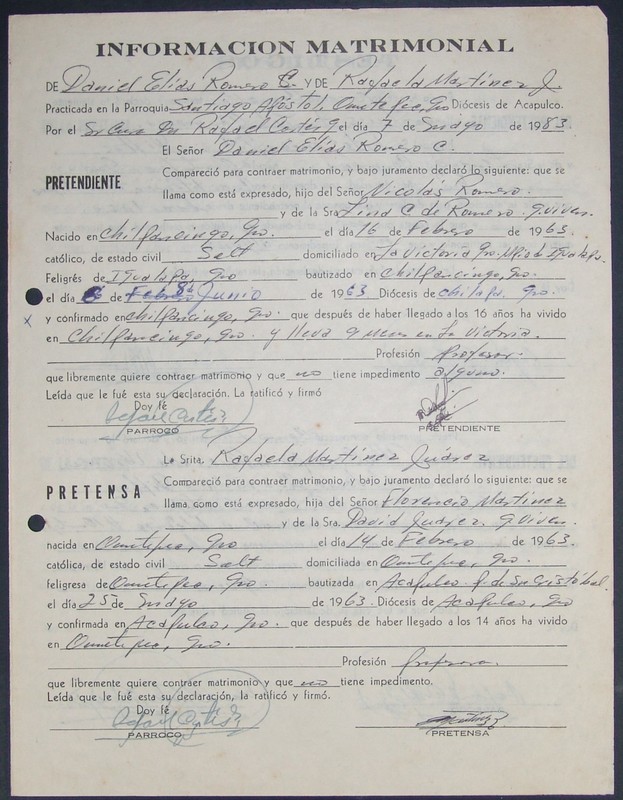 INFORMACION MATRIMONIAL
DE Daniel Elías Romero C. Y DE Rafaela Martínez J.
Practicada en la Parroquia Santiago Apóstol, Ometepec, Gro Diócesis de Acapulco.
Por el Sr Cura Dn Rafael Cortés el día 7 de Mayo de 1983
El Señor Daniel Elías Romero C.
PRETENDIENTE
Compareció para contraer matrimonio, y bajo juramento declaró lo siguiente: que se
llama como está expresado, hijo del Señor Nicolás Romero.
y de la Sra. Lina C de Romero. q. viven.
Nacido en Chilpancingo, Gro. el día 16 de Febrero de 1963.
católico, de estado civil Solt domiciliado en La Victoria Gro. Mpio de Igualapa.
Feligrés de Igualapa, Gro bautizado en Chilpancingo, Gro.
el día 8 de Junio de 1963 Diócesis de Chilapa, Gro.
x y confirmado en Chilpancingo, Gro. que después de haber llegado a los 16 años ha vivido
en Chilpancingo, Gro. y lleva 9 meses en La Victoria.
Profesión Profesor.
que libremente quiere contraer matrimonio y que no tiene impedimento alguno.
Leída que le fué esta su declaración. La ratificó y firmó
Doy fé
Rafael Cortés
PARROCO PRETENDIENTE
La Srita. Rafaela Martínez Juárez
PRETENSA
Compareció para contraer matrimonio, y bajo juramento declaró lo siguiente: que se
llama como está expresado, hija del Señor Florencio Martínez
y de la Sra. David Juárez. q. viven.
nacida en Ometepec, Gro el día 14 de Febrero de 1963.
católica, de estado civil Solt domiciliada en Ometepec, Gro.
feligresa de Ometepec, Gro. bautizada en Acapulco. P. de Sn Cristóbal.
el día 25 de Mayo de 1963. Diócesis de Acapulco, Gro
y confirmada en Acapulco, Gro. que después de haber llegado a los 14 años ha vivido
en Ometepec, Gro.
Profesión Profesora.
que libremente quiere contraer matrimonio y que no tiene impedimento.
Leída que le fué esta su declaración, la ratificó y firmó.
Doy fé
Rafael Cortés
PARROCO PRETENSA